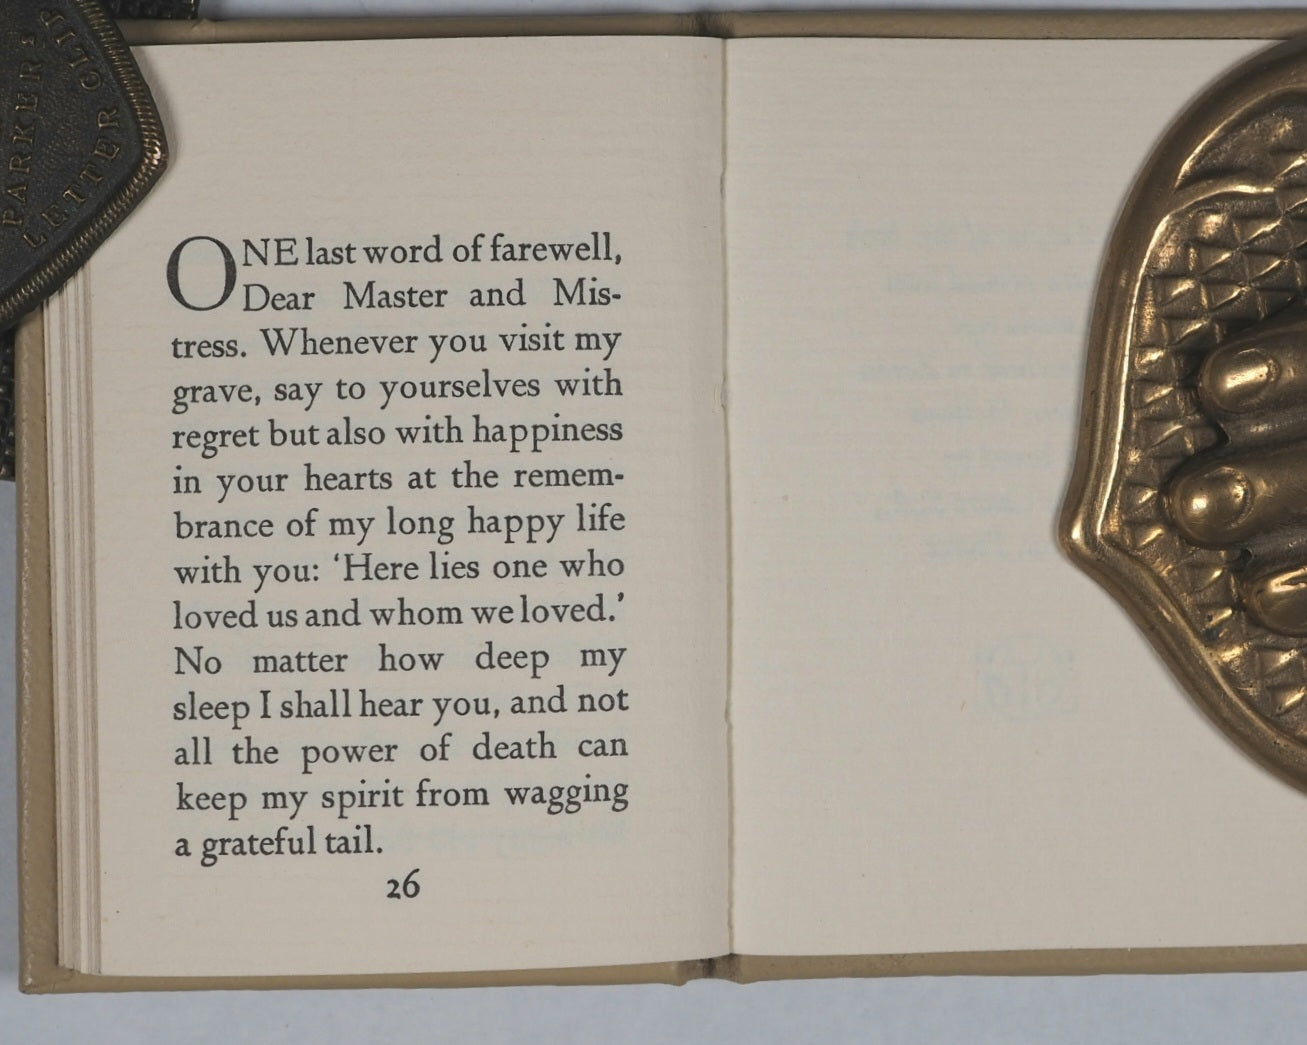 PARKERS
LETTER CLIP
ONE last word of farewell,
Dear Master and Mis-
tress. Whenever you visit my
grave, say to yourselves with
regret but also with happiness
in your hearts at the remem-
brance of my long happy life
with you: ‘Here lies one who
loved us and whom we loved.’
No matter how deep my
sleep I shall hear you, and not
all the power of death can
keep my spirit from wagging
a grateful tail.
26